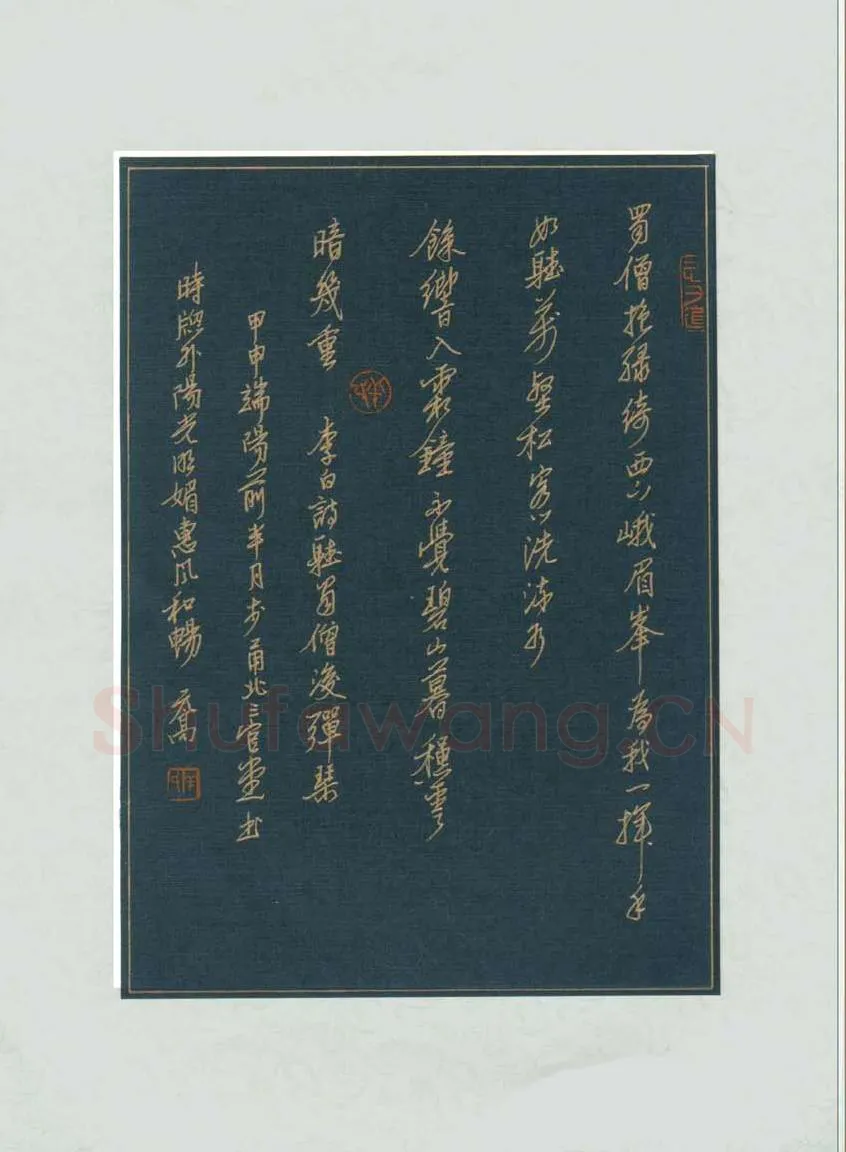 蜀僧抱緑綺西下峨眉峯為我一揮手
如聽萬壑松客心洗流水
餘響入霜鐘不覺碧山暮穐雲
暗幾重 李白詩聽蜀僧浚彈琴
甲申端陽前半月於甬北三管堂書
時窗外陽光明媚惠風和暢
Shufawang.CN